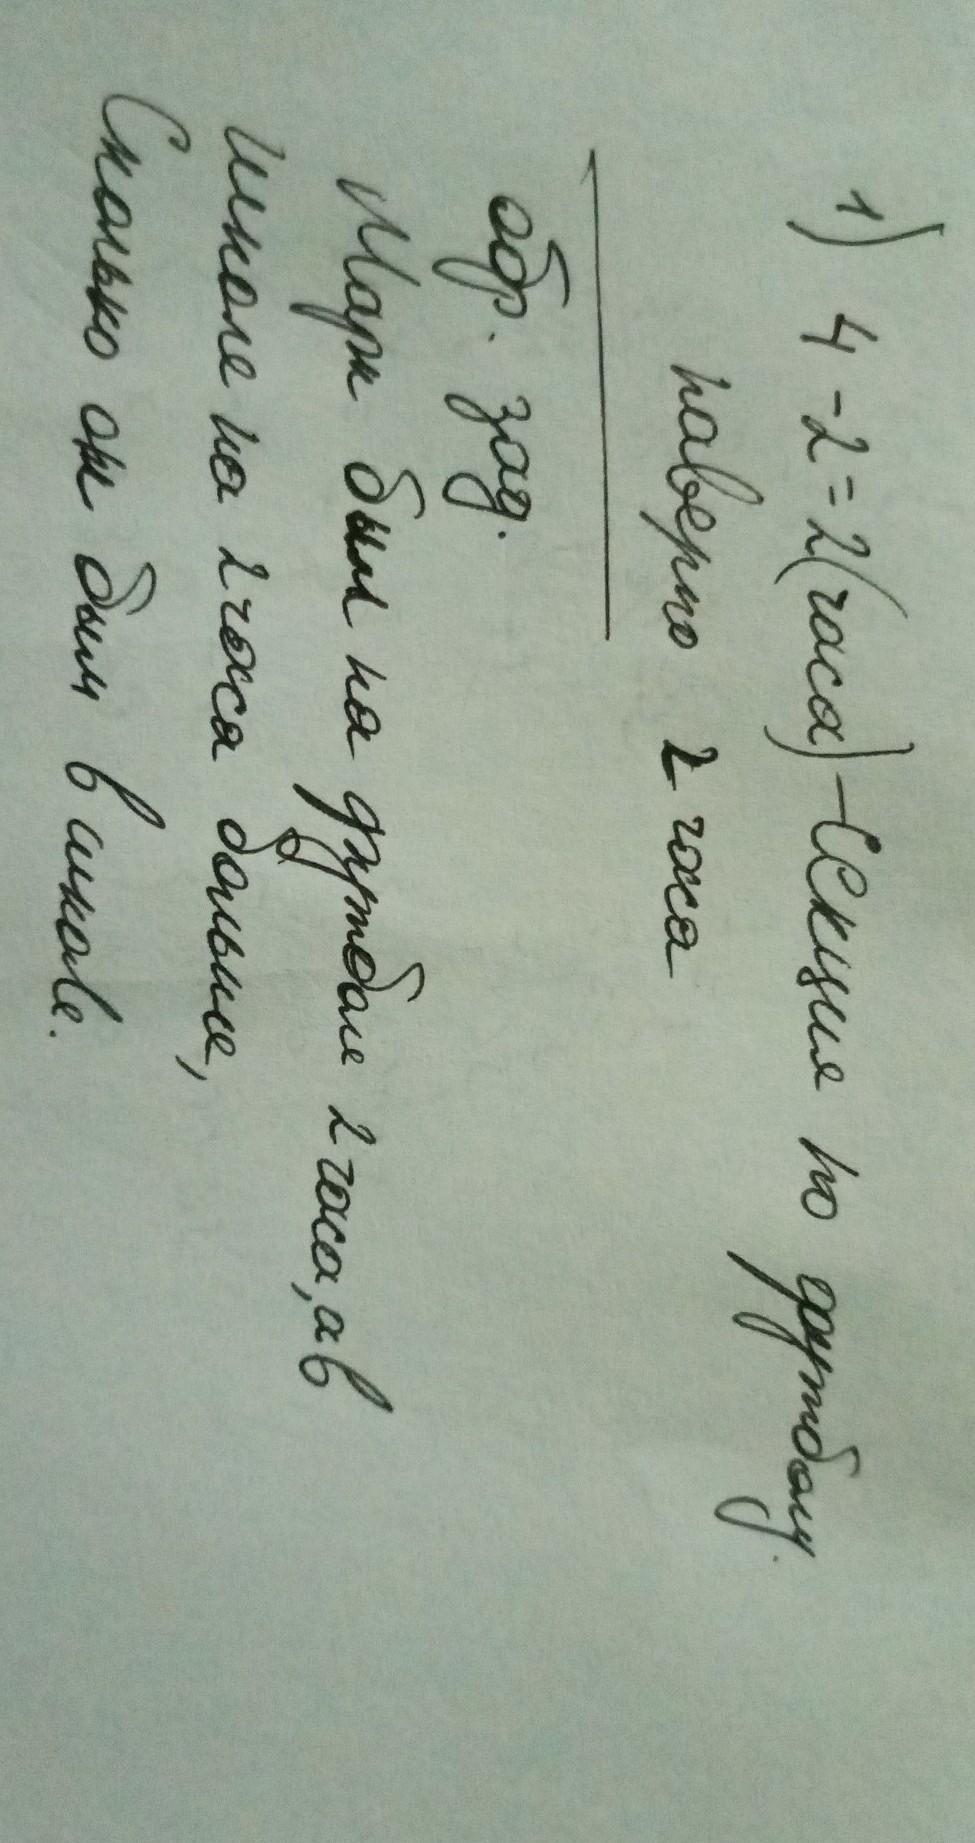 1) 4-2=2(часа)-Секция по футболу.
наверно 2 часа
обр. зад.
Марк был на футболе 2 часа, а в
школе на 2 часа больше,
Сколько он был в школе.